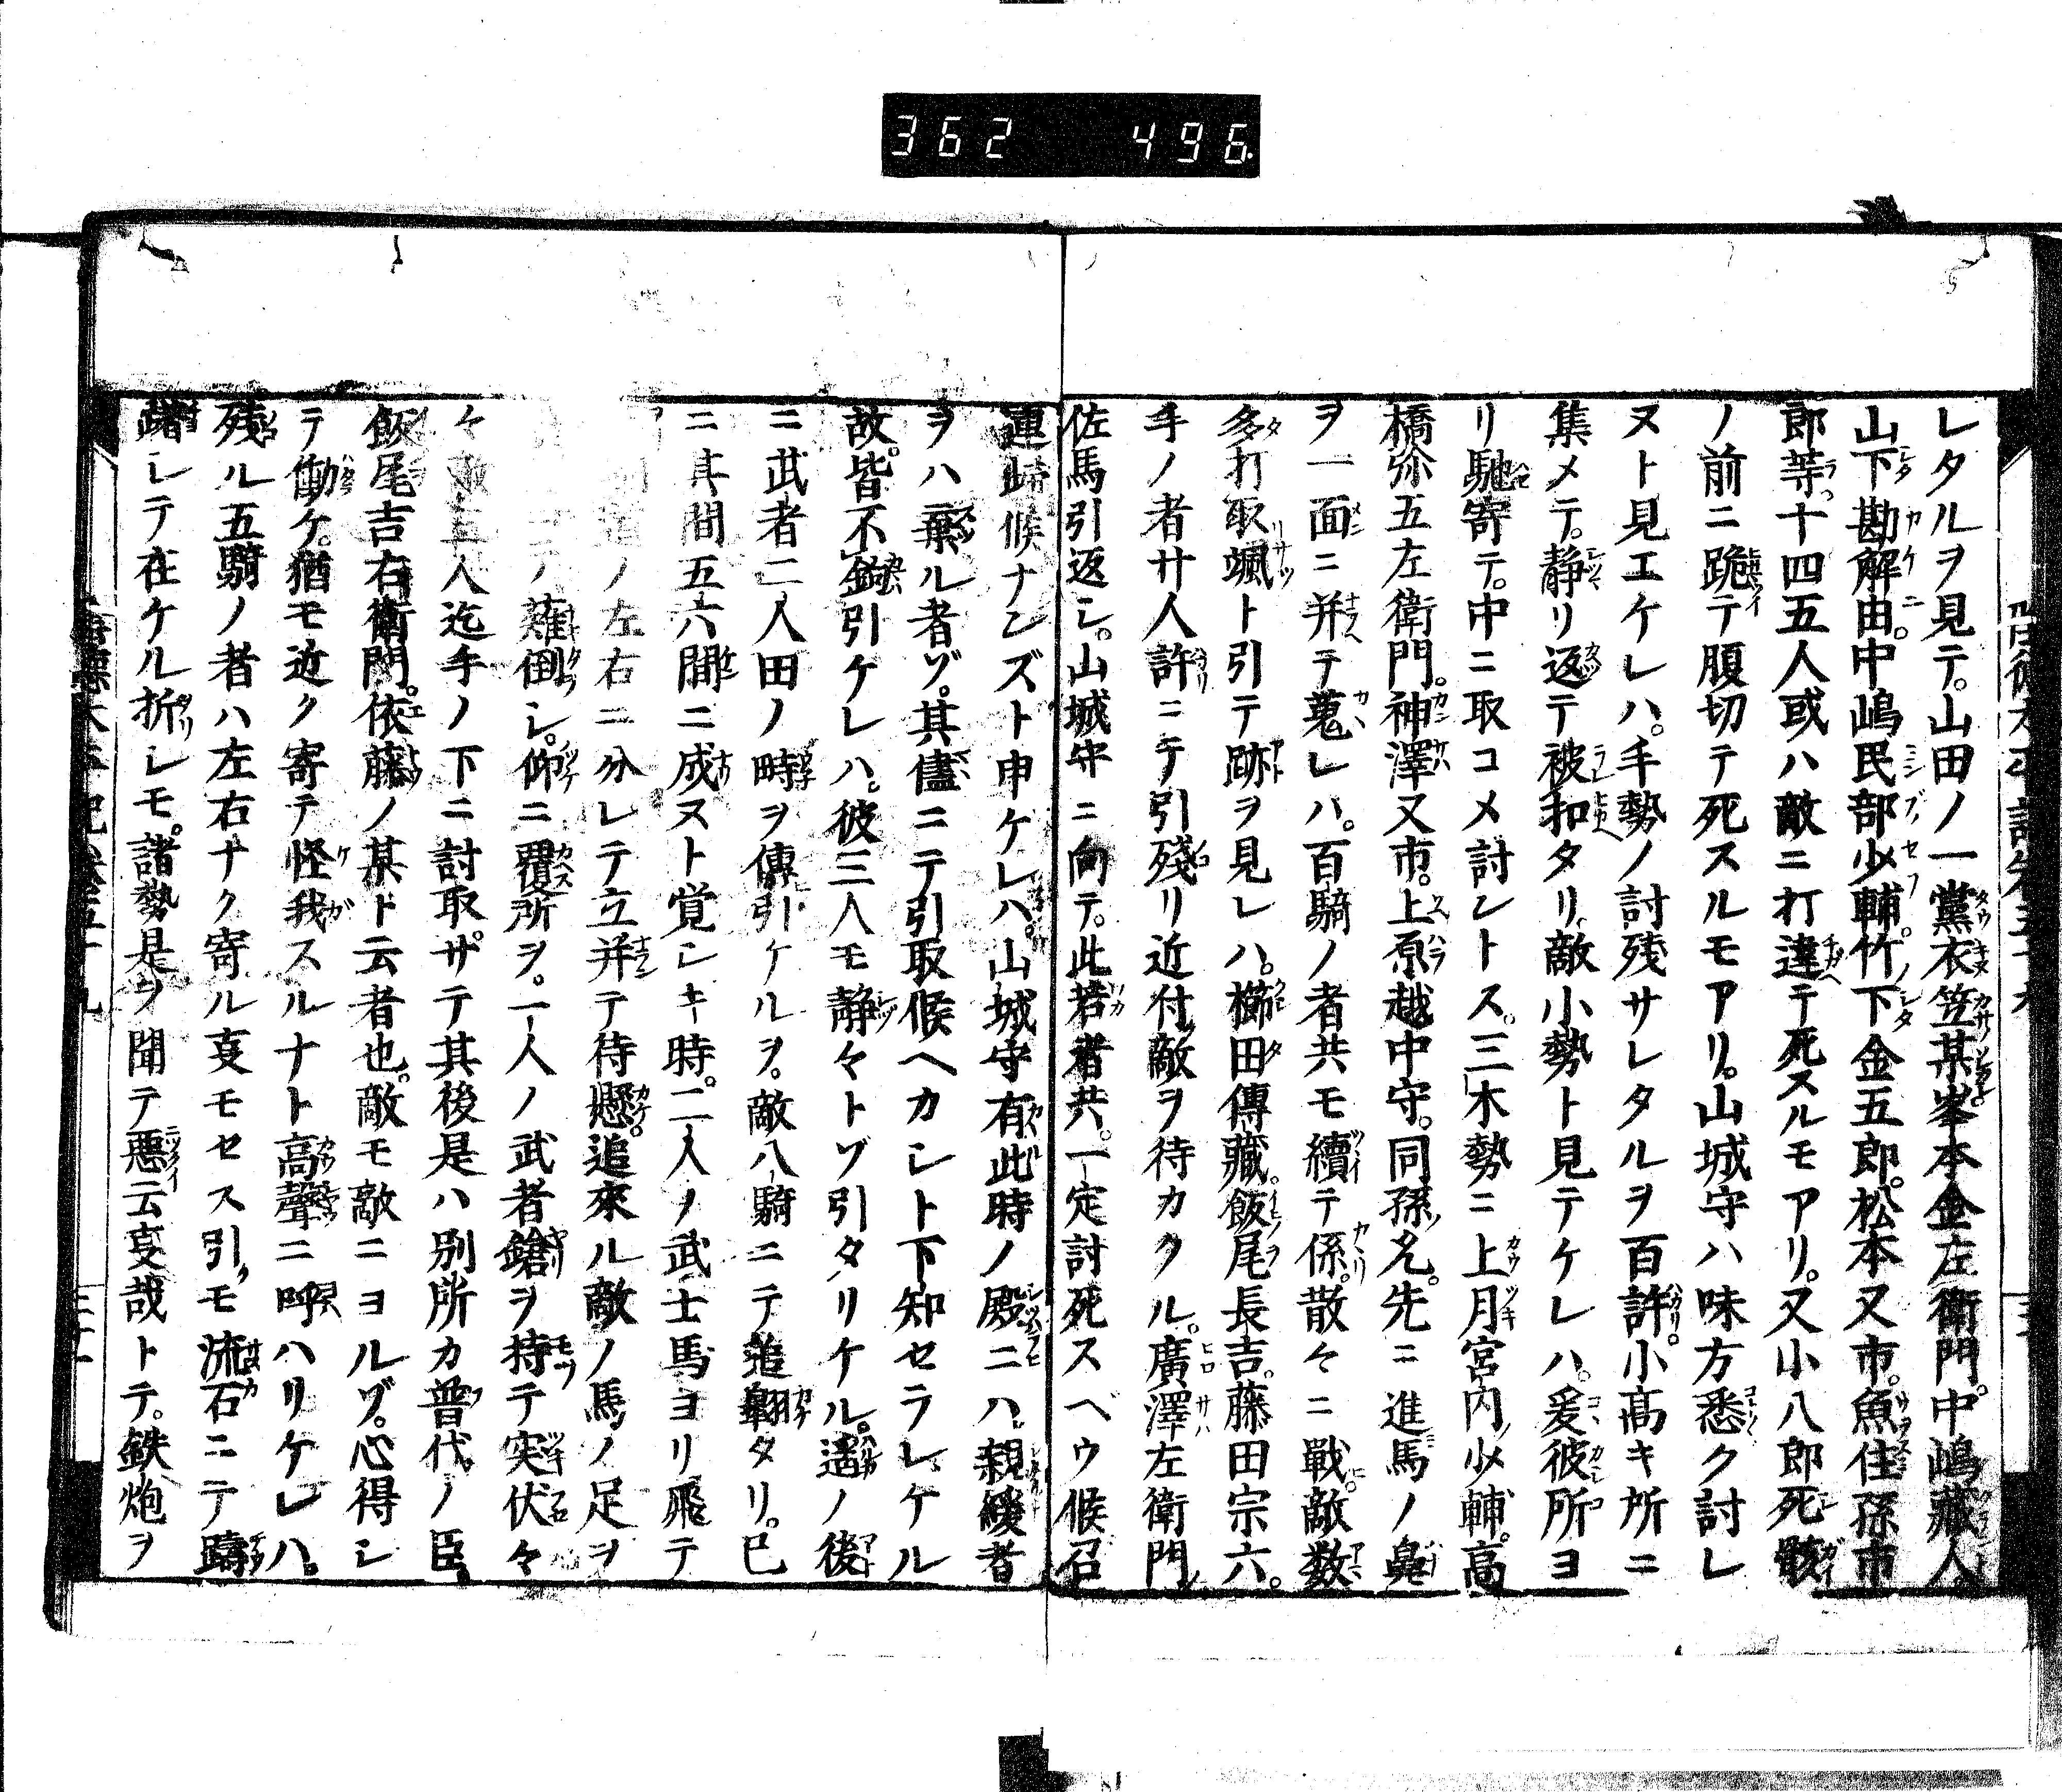 362 496
レタルヲ見テ。山田ノ一黨衣笠某峯本金左衛門。中嶋藏人。
山下勘解由。中嶋民部少輔。竹下金五郎。松本又市。魚住孫市
郎等。十四五人或ハ敵ニ打違テ死スルモアリ。又小八郎死骸
ノ前ニ跪テ腹切テ死スルモアリ。山城守ハ味方悉ク討レ
ヌト見エケレハ。手勢ノ討残サレタルヲ百許。小高キ所ニ
集メテ。静リ返テ被扣タリ。敵小勢ト見テケレハ。爰彼所ヨ
リ馳寄テ。中ニ取コメ討レトス。三木勢ニ上月宮内少輔。高
橋弥五左衛門。神澤又市。上原越中守。同孫兄。先ニ進馬ノ鼻
ヲ一面ニ并テ蒐レハ。百騎ノ者共モ續テ係。散々ニ戰。敵数
多打取颯ト引テ跡ヲ見レハ。櫛田傳藏。飯尾長吉。藤田宗六。
手ノ者廿人許ニテ引殘リ近付敵ヲ待カクル。廣澤左衛門
佐馬引返シ。山城守ニ向テ。此若者共。一定討死スベウ候召
連帰候ナンズト申ケレハ。山城守有此時ノ殿ニハ。親緩者
ヲハ棄ル者ゾ。其儘ニテ引取候ヘカシト下知セラレケル
故。皆不鉤引ケレハ。彼三人モ静々トゾ引タリケル。遥ノ後
ニ武者二人田ノ畤ヲ傳引ケルヲ。敵八騎ニテ追翔タリ。已
ニ其間五六間ニ成ヌト覚シキ時。二人ノ武士馬ヨリ飛テ
ノ左右ニ分レテ立并テ待懸。追來ル敵ノ馬ノ足ヲ
ノ薙倒シ。仰ニ覆所ヲ。一人ノ武者鎗ヲ持テ突伏々
々 三人迄手ノ下ニ討取ザテ其後是ハ別所カ普代ノ臣。
飯尾吉右衛門。依藤ノ某ト云者也。敵モ敵ニヨルゾ。心得シ
テ働ケ。猶モ近ク寄テ怪我スルナト高聲ニ呼ハリケレハ。
残ル五騎ノ者ハ左右ナク寄ル叓モセス引モ流石ニテ躊
躇シテ在ケル折シモ。諸勢是ヲ聞テ惡云叓哉トテ。鉄炮ヲ